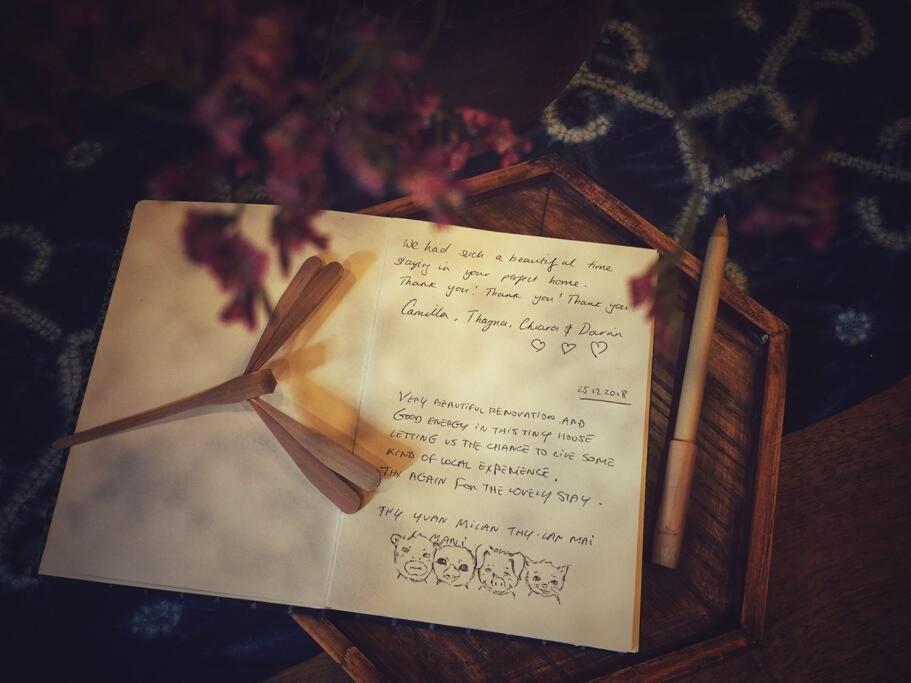 We had such a beautiful time
staying in your perfect home.
Thank you! Thank you! Thank you
Camilla, Thagna, Chiara & Darin
25.12.2018
VERY BEAUTIFUL RENOVATION AND
GOOD ENERGY IN THIS TINY HOUSE
LETTING US THE CHANCE TO LIVE SOME
KIND OF LOCAL EXPERIENCE.
THX AGAIN FOR THE LOVELY STAY.
THY YUAN MILAN THY-LAN MAI
MANI